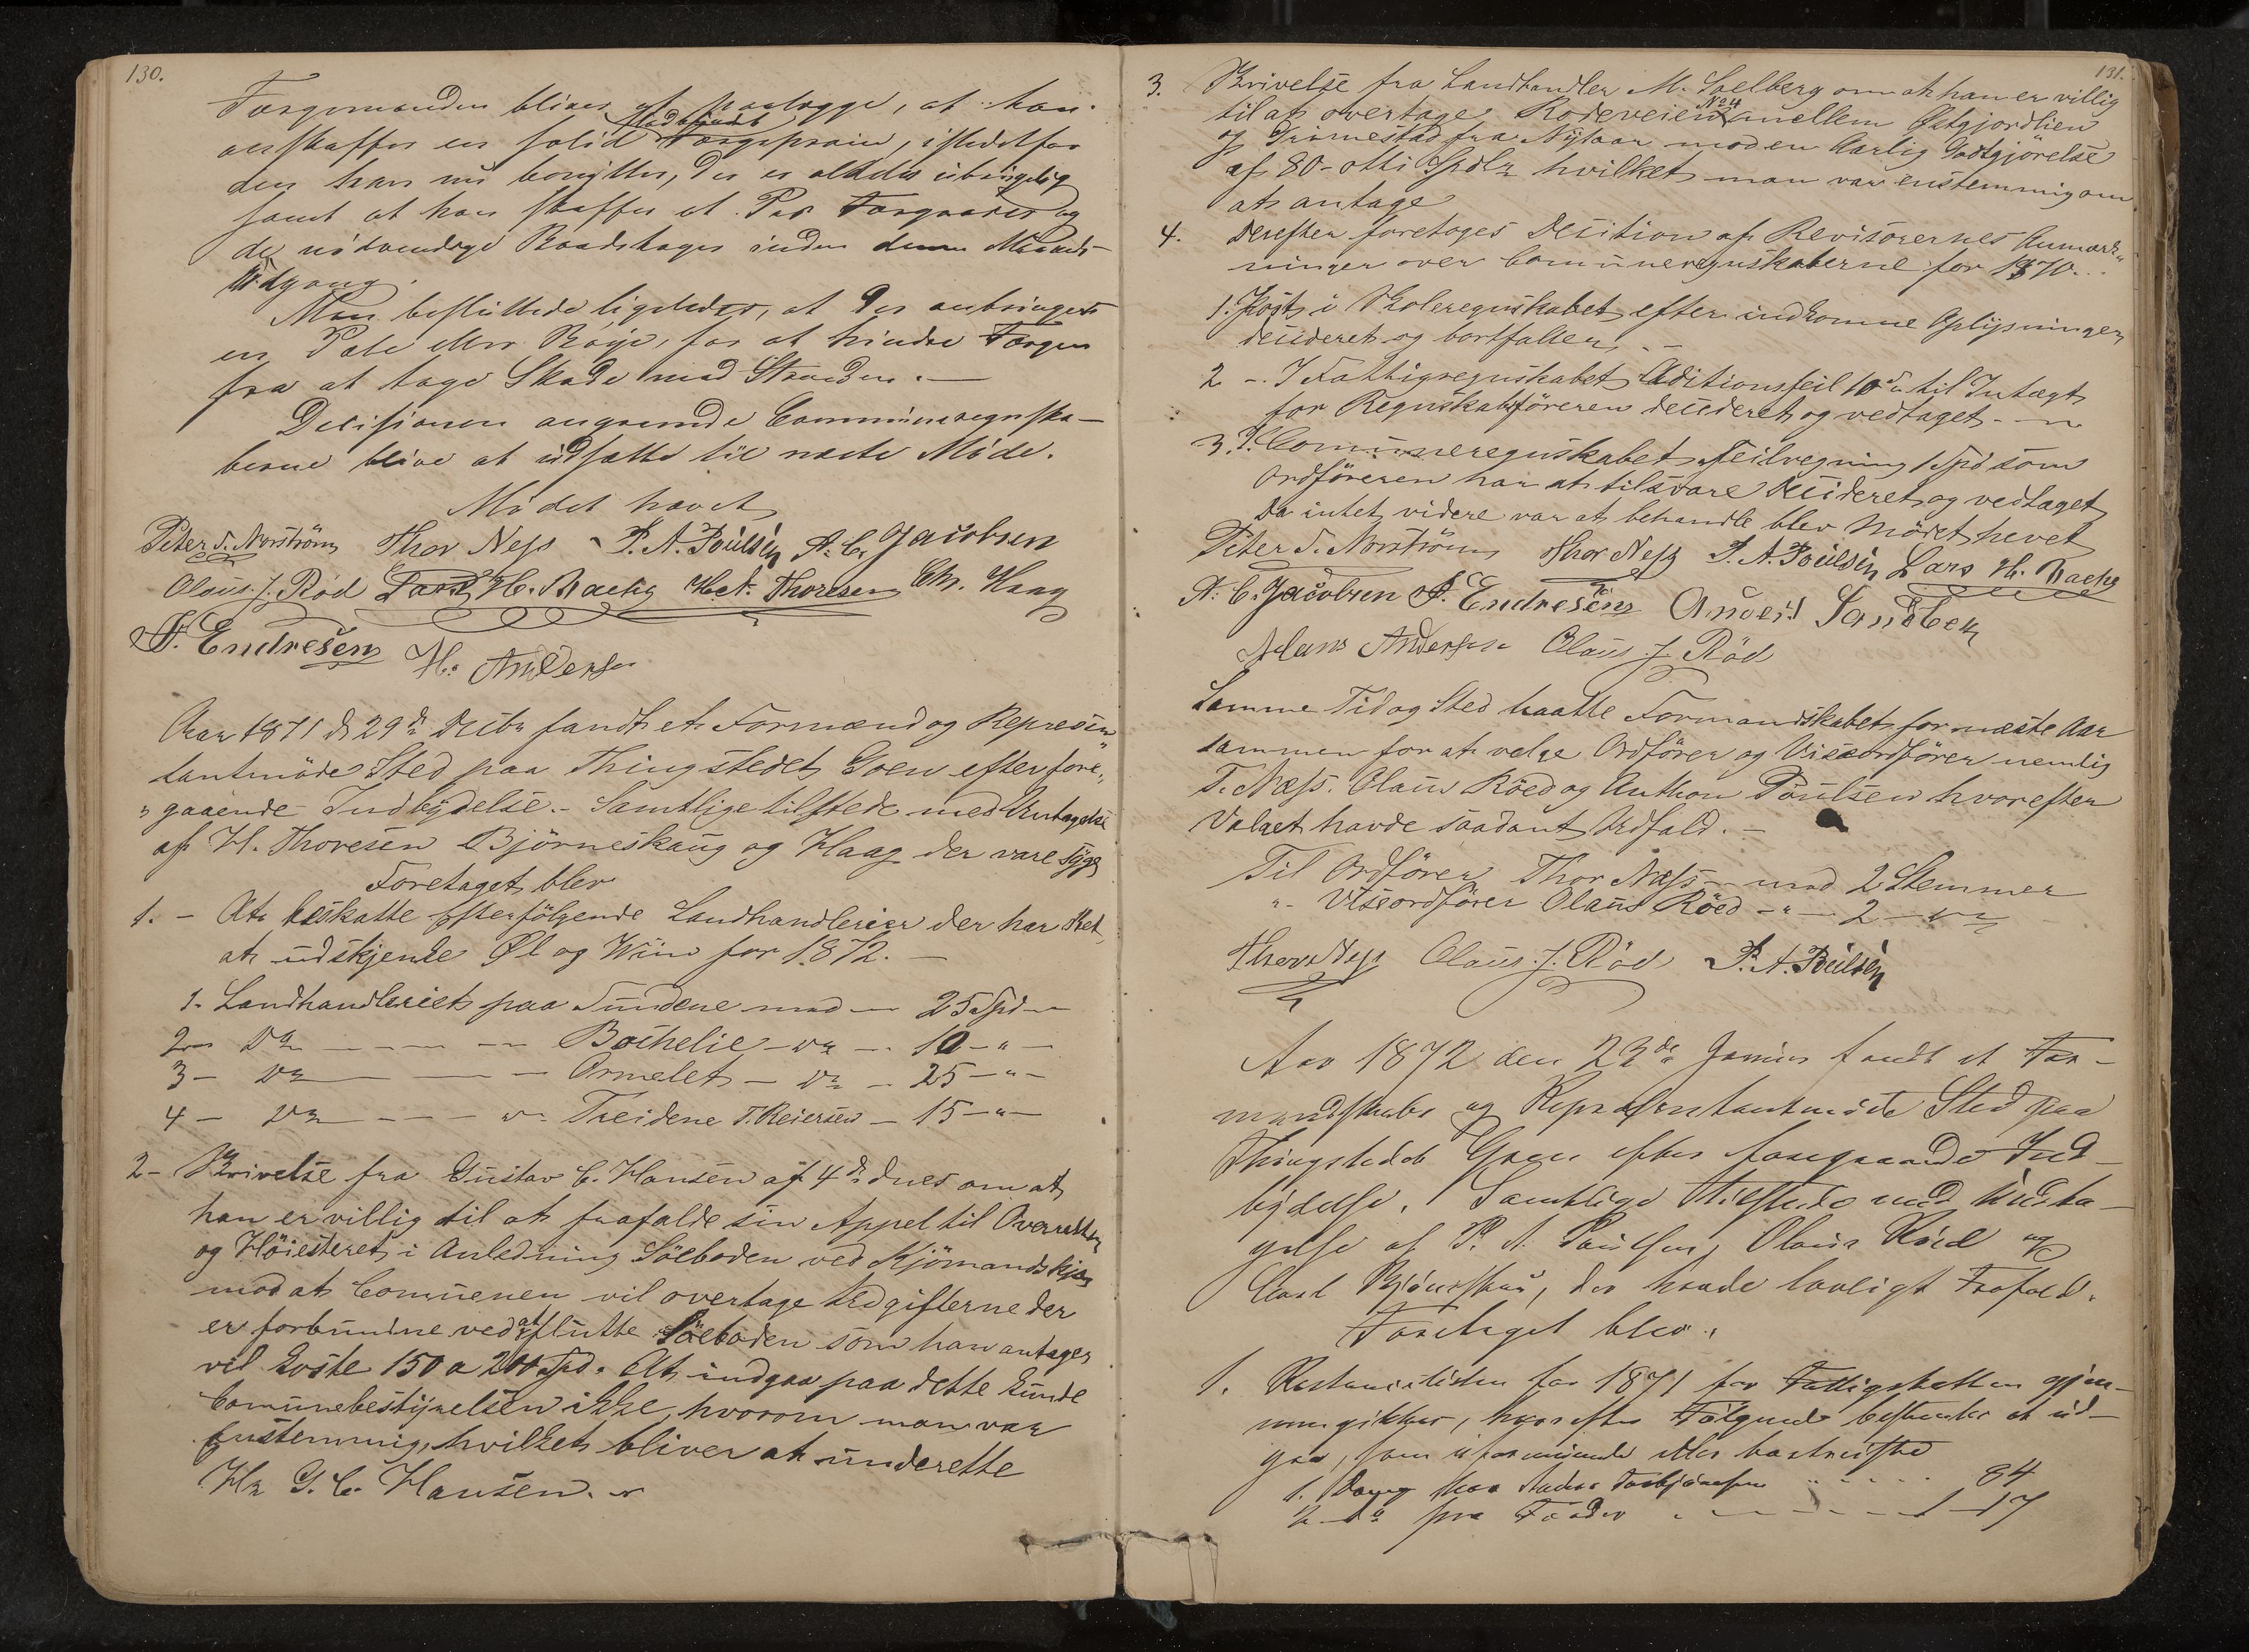 130.
Færgemanden bliver at paalægge, at han
anskaffer en solid Fladbundt Færgepram, istedetfor
den han nu benytter, der er aldeles ubrugelig
samt at han skaffer et Par Færgeaarer og
de nødvendige Baadshager inden denne Maaneds
Udgang.
Man besluttede ligeledes, at der anbringes
en Pæle eller Bøye, for at hindre Færgen
fra at tage Skade mod Stranden. —
Decisionen angaaende Communeregnska-
berne blive at udsætte til næste Møde.
Mødet hævet
Peter S. Norström Thor Ness P. A. Poulsen A. C. Jacobsen
Olaus J. Röd Lars H. Bache H. A. Thoresen Chr. Haag
F. Endresen H. Andersen
Aar 1871 d 29de Decbr fandt et Formænd og Represen„
tantmöde Sted paa Thingstedet Goen efter fore„
„gaaende Indbydelse. - Samtlige tilstede med Untagelse
af H. Thoresen Björneskaug og Haag der vare syge
Foretaget blev
1. - At beskatte efterfölgende Landhandlerier der har Ret
at udskjenke Øl og Wiin for 1872. —
1. Landhandleriet paa Sundene med — 25 Spd —
2 — Do — — — Bochelie — do — 10 — „ —
3 — Do — — — Ormelet — do — 25 — „ —
4 — Do — — — Treidene T. Reiersen — 15 — „ —
2 - Skrivelse fra Gustav C. Hansen af 4de dnes om at
han er villig til at frafalde sin Appel til Overretten
og Höiesteret i Anledning Söeboden ved Kjömandskjær
mod at Comuenen vil overtage Udgifterne der
er forbundne ved at flutte Söeboden som han antager
vil koste 150 a 200 Spd. At indgaa paa dette kunde
Comunebestyrelsen ikke, hvorom man var
Enstemmig, hvilket bliver at underette
Hr G. C. Hansen.
131.
3. Skrivelse fra Landhandler M. Soelberg om at han er villig
til at overtage Rodeveien No 4 mellem Østgjordlien
og Grimestad fra Nytaar mod en Aarlig Godtgjörelse
af 80 - otti Spdlr hvilket man var enstemmig om
at antage
4. Derefter foretages Decition af Revisorernes Anmærk„
ninger over Comuneregnskaberne for 1870.
1. Post i Skoleregnskabet efter indkomne Oplysninger
decideret og bortfalder. —
2 -. I Fattigregnskabet Aditionsfeil 10 s til Intægt
for Regnskabsföreren decideret og vedtaget. —
3. I Comuneregnskabet Feilregning 1 Spd som
Ordföreren har at tilsvare decideret og vedtaget
Da intet videre var at behandle blev Mödet hevet
Peter S. Norström Thor Ness P. A. Poulsen Lars H. Bache
A. C. Jacobsen F. Endresen Anders Sandbek
Hans Andersen Olaus J. Röd
Samme Tid og Sted traatte Formandskabet for næste Aar
sammen for at velge Ordförer og Viseordförer nemlig
T. Næss. Olaus Röed og Anthon Poulsen hvorefter
Valget havde saadant Udfald. —
Til Ordförer Thor Næss — med 2 Stemmer
„ - Viseordförer Olaus Röed - „ - 2 — do
Thor Ness Olaus J. Röd P. A. Poulsen
Aar 1872 den 23de Januar fandt et For-
mandskabs og Repræsentantmøde Sted paa
Thingstedet Goen efter foregaaende Ind-
bydelse. Samtlige tilstede med Undta-
gelse af P. A. Poulsen, Olaus Röed og
Carl Bjørneskau, der havde lovligt Forfald.
Foretaget blev:
1. Restancelisten for 1871 for Fattigskatten gjen-
nemgikkes, hvorefter Følgende besluttes at ud-
gaa, som uformuende eller bortreiste
1. Anders Torbjørnsen — 84
2. do fra — 1 — 17